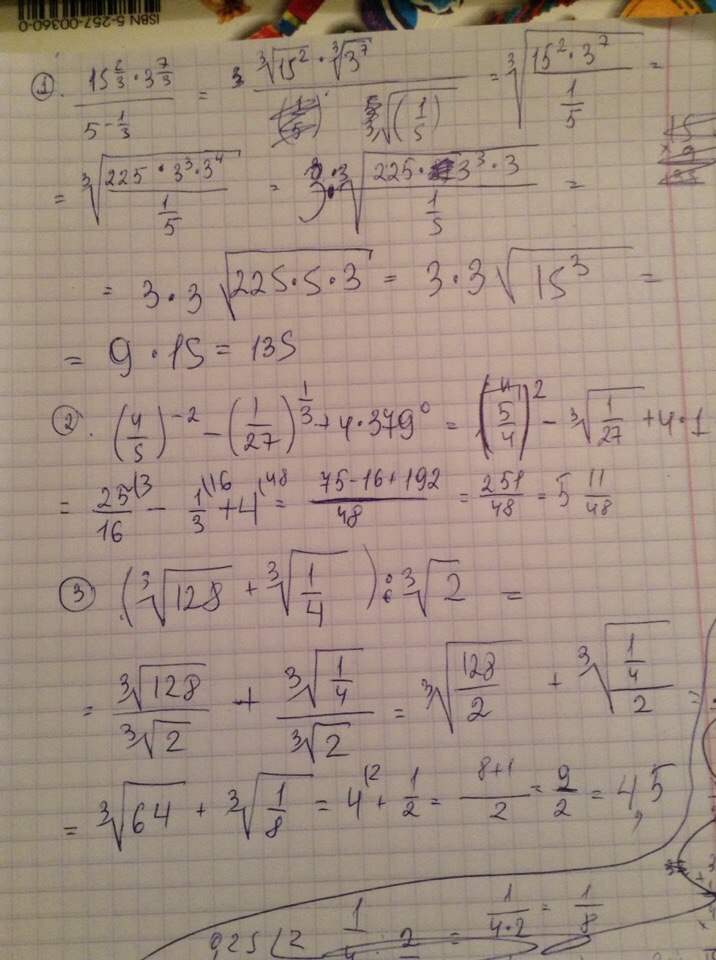 ISBN 5-257-00360-0
① . 15^(2/3) · 3^(7/3) / 5^(-1/3) = ∛15² · ∛3⁷ / ∛(1/5) = ∛(15² · 3⁷ / (1/5)) =
= ∛(225 · 3³ · 3⁴ / (1/5)) = 3 · 3 ∛(225 · 3³ · 3 / (1/5)) =
= 3 · 3 √(225 · 5 · 3) = 3 · 3 √(15³) =
= 9 · 15 = 135
② . (4/5)^(-2) - (1/27)^(1/3) + 4 · 379⁰ = (5/4)² - ∛(1/27) + 4 · 1
= 25/16 - 1/3 + 4 = (75 - 16 + 192)/48 = 251/48 = 5 11/48
③ (∛128 + ∛(1/4)) : ∛2 =
= ∛128 / ∛2 + ∛(1/4) / ∛2 = ∛(128/2) + ∛((1/4)/2) =
= ∛64 + ∛(1/8) = 4 + 1/2 = (8+1)/2 = 9/2 = 4,5
= 1/(4·2) = 1/8